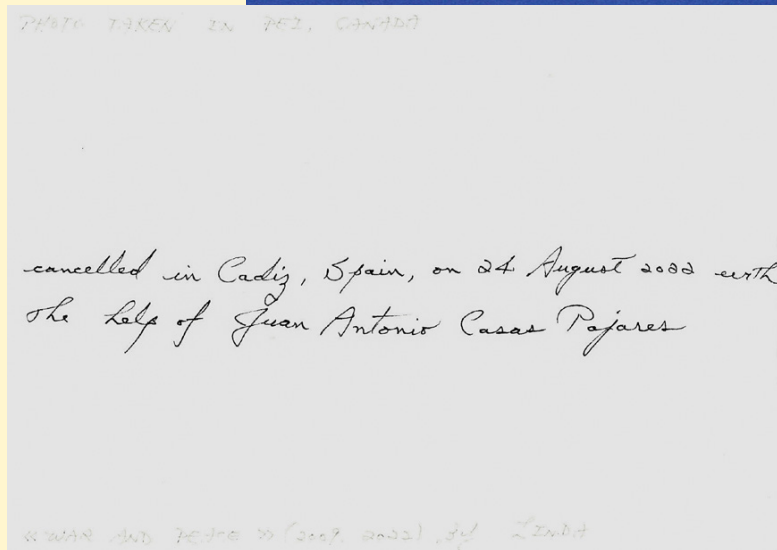 PHOTO TAKEN IN PEI, CANADA
cancelled in Cadiz, Spain, on 24 August 2022 with
the help of Juan Antonio Casas Pajares
« WAR AND PEACE » (2009, 2022), by LINDA